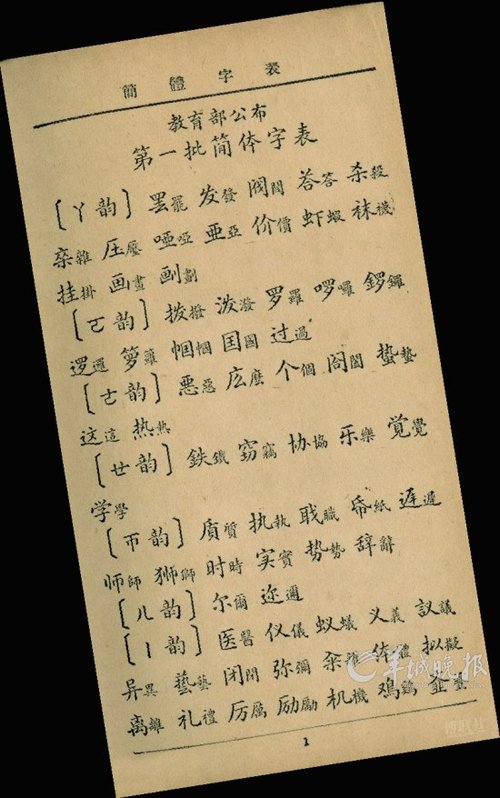 簡體字表
教育部公布
第一批简体字表
〔ㄚ韵〕 罢罷 发發 阀閥 荅答 杀殺
杂雜 压壓 哑啞 亚亞 价價 虾蝦 袜襪
挂掛 画畫 㓰劃
〔ㄛ韵〕 拨撥 泼潑 罗羅 啰囉 锣鑼
逻邏 箩籮 帼幗 国國 过過
〔ㄜ韵〕 恶惡 庅麼 个個 阁閣 蛰蟄
这這 热熱
〔ㄝ韵〕 鉄鐵 窃竊 协協 乐樂 觉覺
学學
〔帀韵〕 质質 执執 职職 帋紙 迟遲
师師 狮獅 时時 实實 势勢 辞辭
〔ㄦ韵〕 尔爾 迩邇
〔ㄧ韵〕 医醫 仪儀 蚁蟻 义義 议議
异異 藝 闭閉 弥彌 籴糴 体體 拟擬
离離 礼禮 厉厲 励勵 机機 鸡鷄
羊城晚报
1